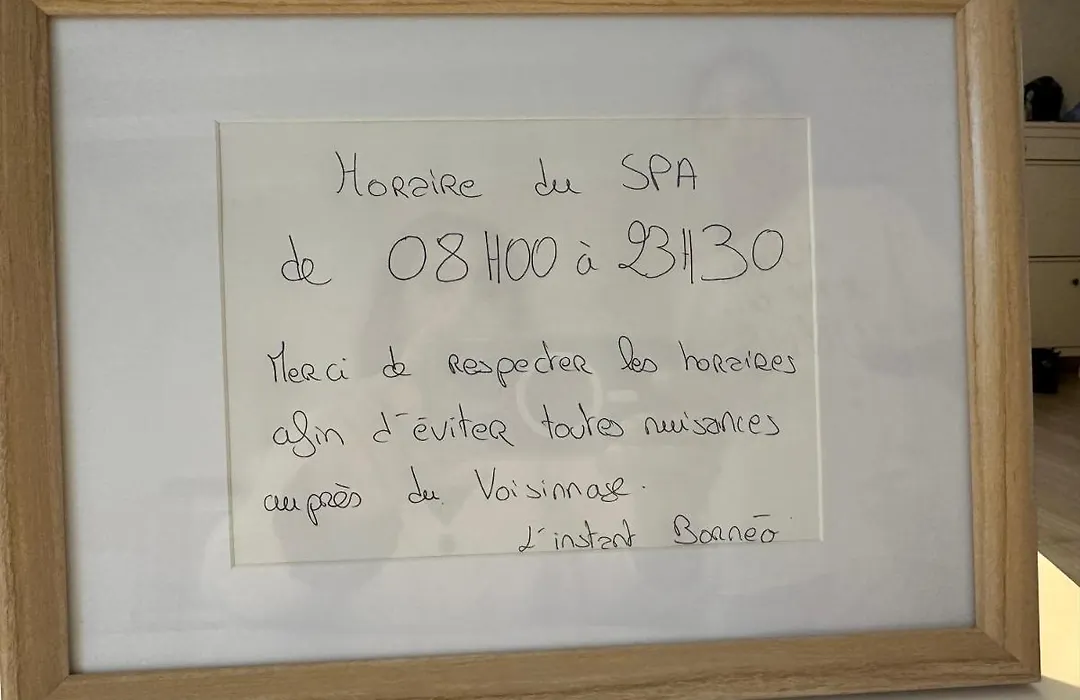 Horaire du SPA
de 08H00 à 23H30
Merci de respecter les horaires
afin d'éviter toutes nuisances
auprès du Voisinnage.
L'instant Bornéo